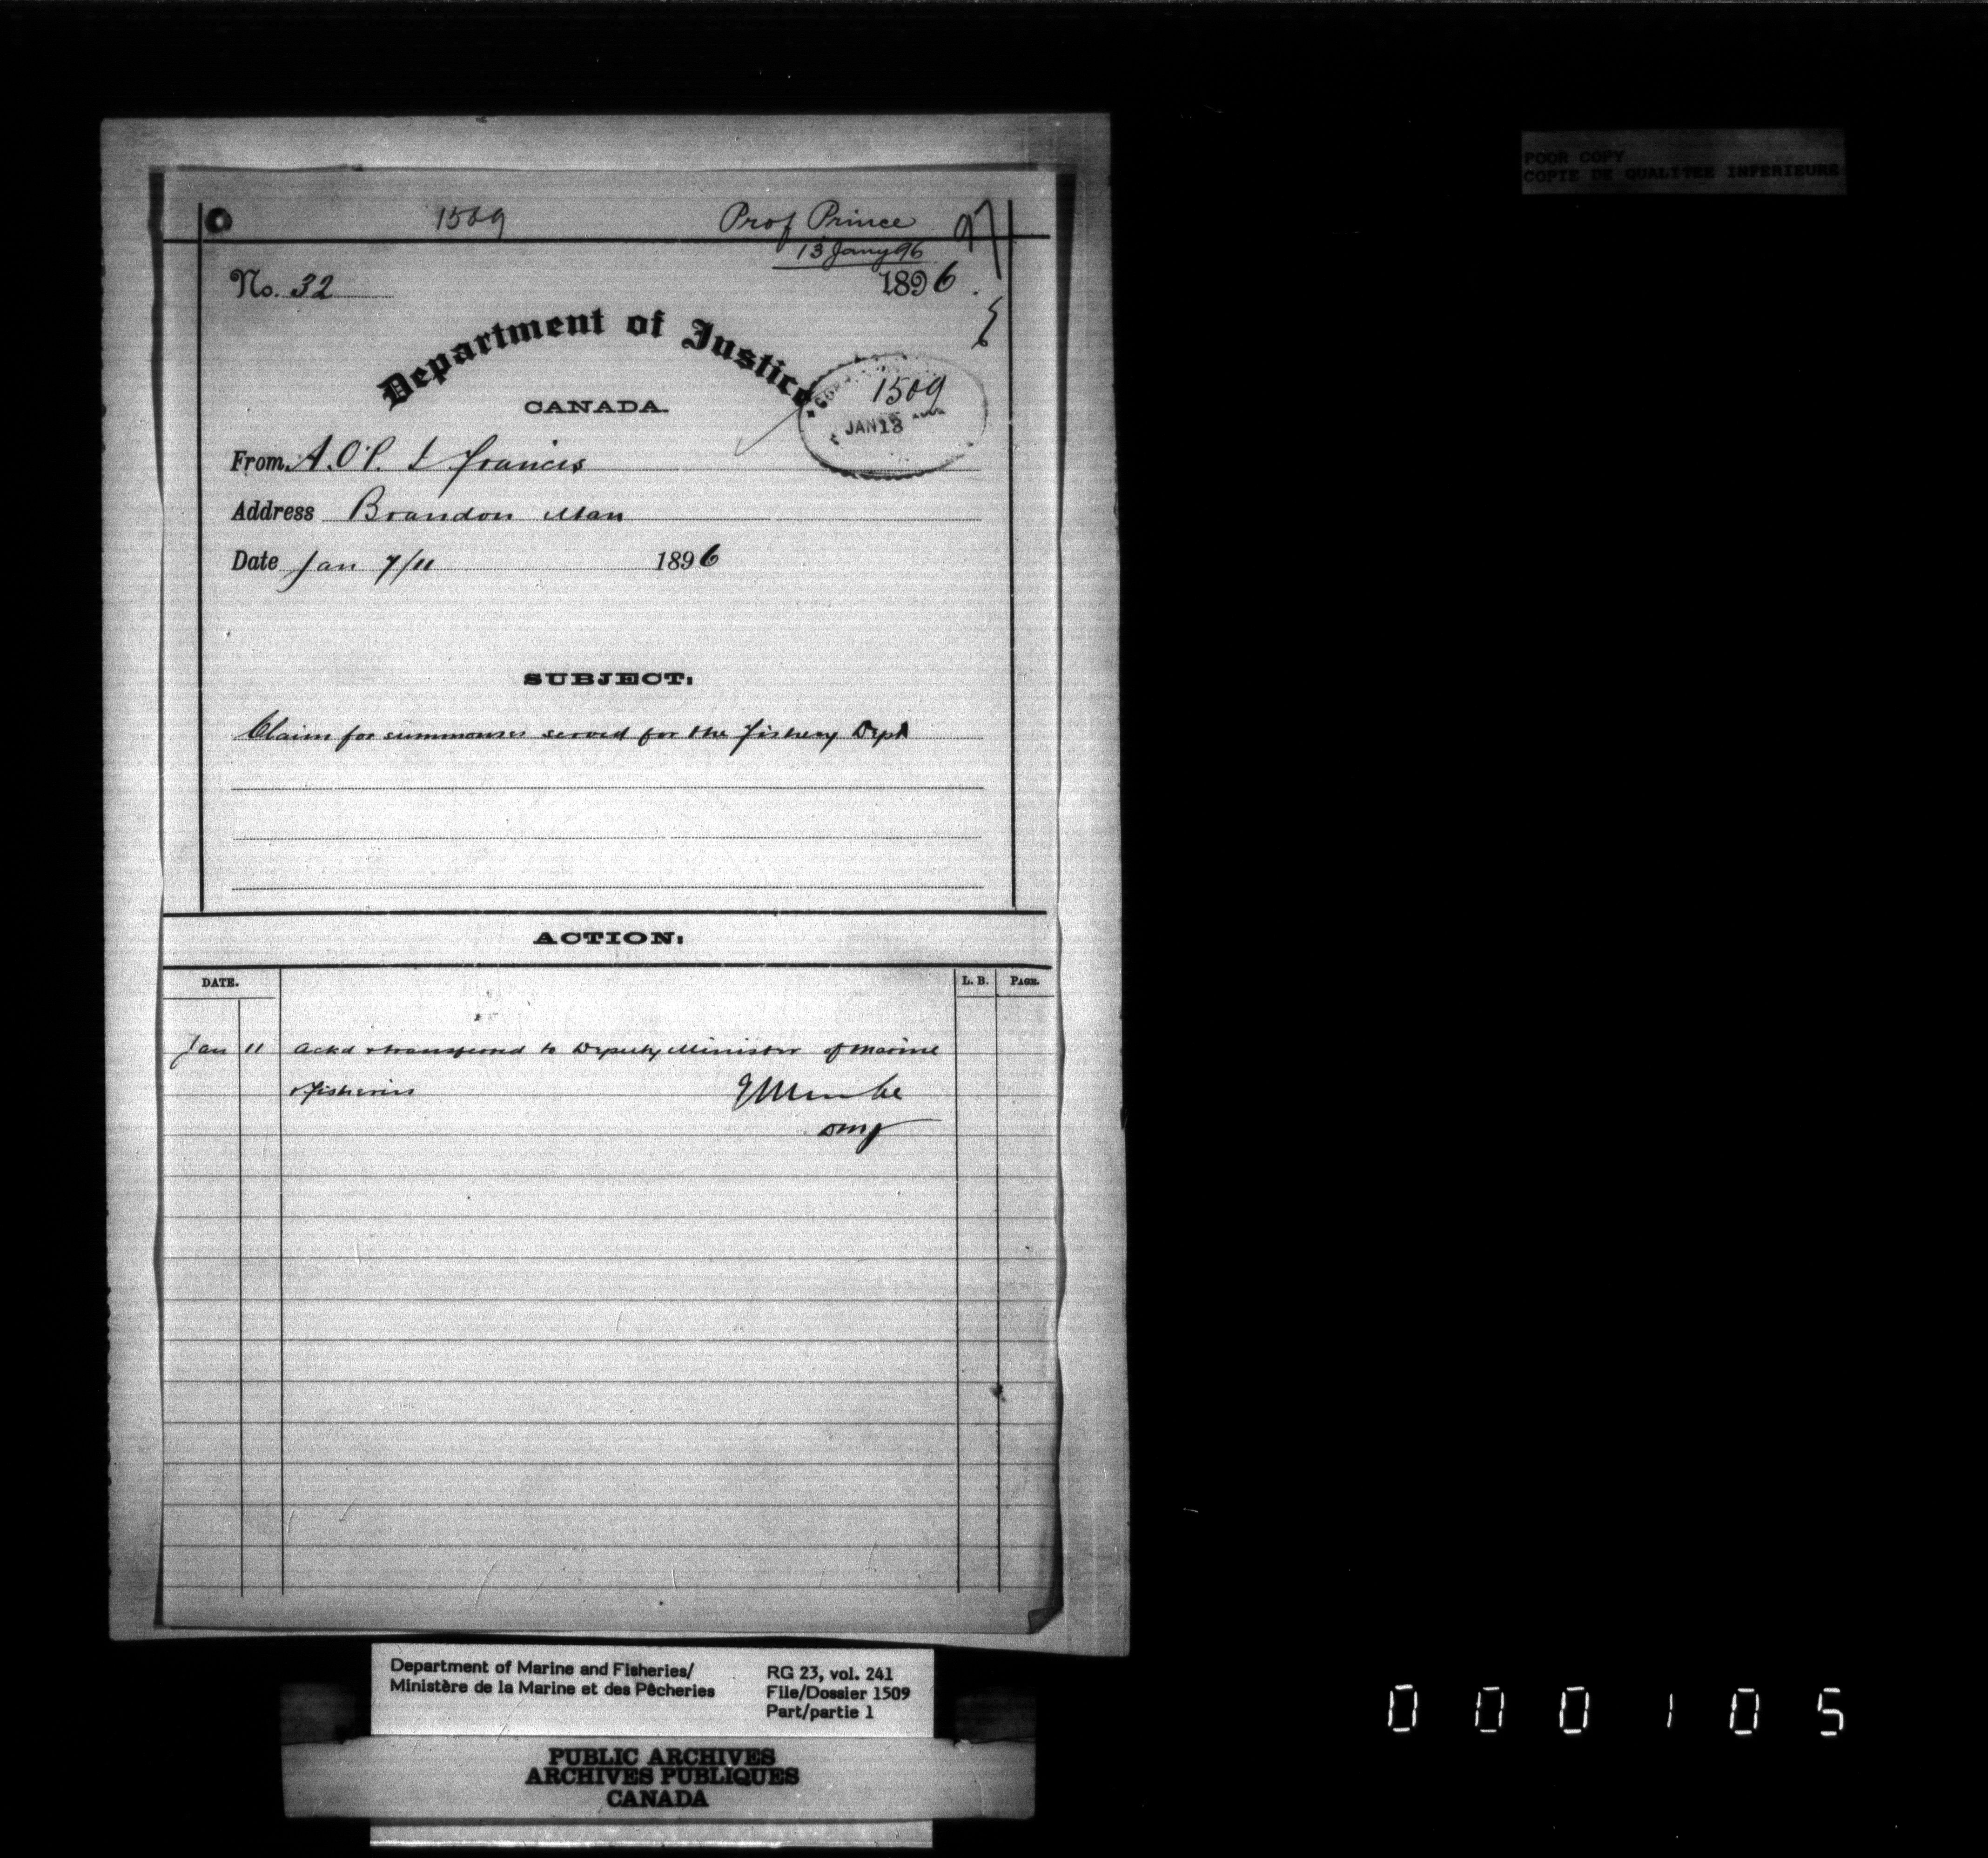 POOR COPY
COPIE DE QUALITEE INFERIEURE
1509
Prof Prince
97
13 Jany 96
No. 32
1896.
Department of Justice.
CANADA.
1509
JAN 13
From A.O.P. Francis
Address Brandon Man
Date Jan 7/11 1896
SUBJECT:
Claim for summonses served for the Fishery Dept
ACTION:
DATE.
L. B.
PAGE.
Jan 11 Ackd & transferred to Deputy Minister of Marine
& Fisheries
DMJ
Department of Marine and Fisheries/
Ministère de la Marine et des Pêcheries
RG 23, vol. 241
File/Dossier 1509
Part/partie 1
PUBLIC ARCHIVES
ARCHIVES PUBLIQUES
CANADA
000105